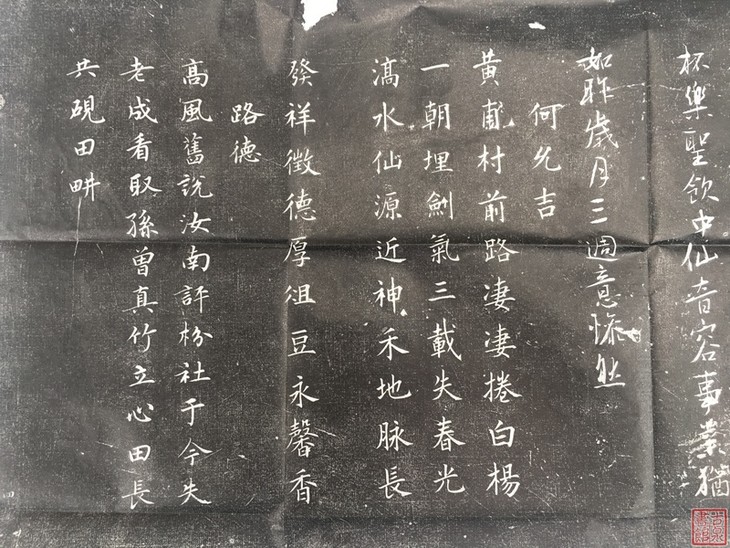 杯樂聖飲中仙音容事業猶
如昨歲月三週意悵然
何允吉
黃甫村前路淒淒捲白楊
一朝埋劍氣三載失春光
滈水仙源近神禾地脉長
發祥徵德厚俎豆永馨香
路德
高風舊說汝南評枌社于今失
老成看取孫曾真竹立心田長
共硯田畊